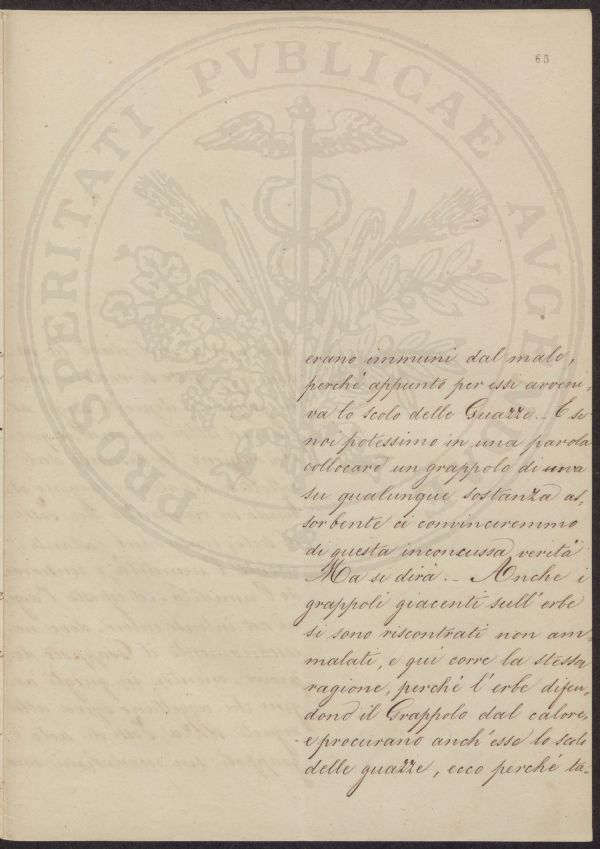 65
PROSPERITATI PVBLICAE AVGE
erano immuni dal male,
perchè appunto per essi avveni-
va lo scolo delle Guazze. _ E se
noi potessimo in una parola
collocare un grappolo di uva
su qualunque sostanza as,
sorbente ci convinceremmo
di questa inconcussa verità
Ma si dirà. _ Anche i
grappoli giacenti sull'erbe
si sono riscontrati non am-
malati, e qui corre la stessa
ragione, perchè l'erbe difen,
dono il Grappolo dal calore,
e procurano anch'esse lo scolo
delle guazze, ecco perchè ta-